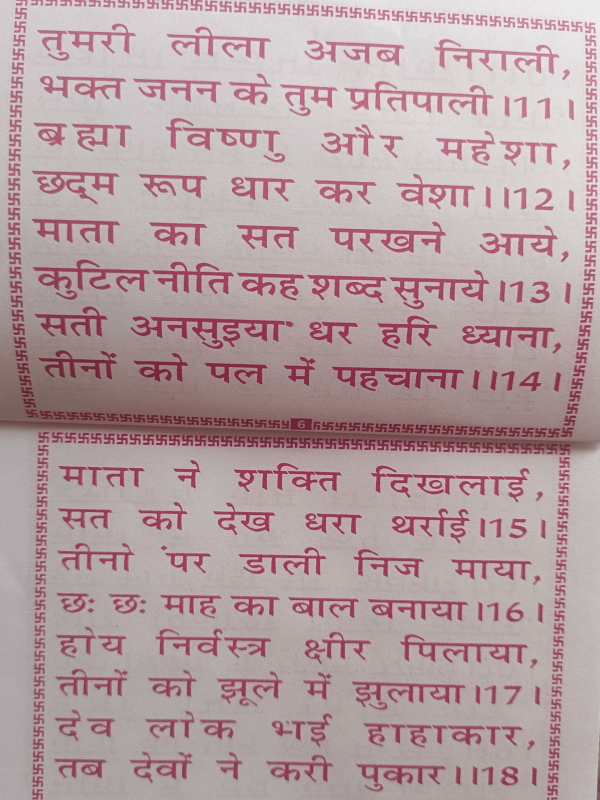 तुमरी लीला अजब निराली,
भक्त जनन के तुम प्रतिपाली।11।
ब्रह्मा विष्णु और महेशा,
छद्म रूप धार कर वेशा।।12।
माता का सत परखने आये,
कुटिल नीति कह शब्द सुनाये।13।
सती अनसुइया धर हरि ध्याना,
तीनों को पल में पहचाना।।14।
6
माता ने शक्ति दिखलाई,
सत को देख धरा थर्राई।15।
तीनो ंपर डाली निज माया,
छः छः माह का बाल बनाया।16।
होय निर्वस्त्र क्षीर पिलाया,
तीनों को झूले में झुलाया।17।
देव लोक भई हाहाकार,
तब देवों ने करी पुकार।।18।